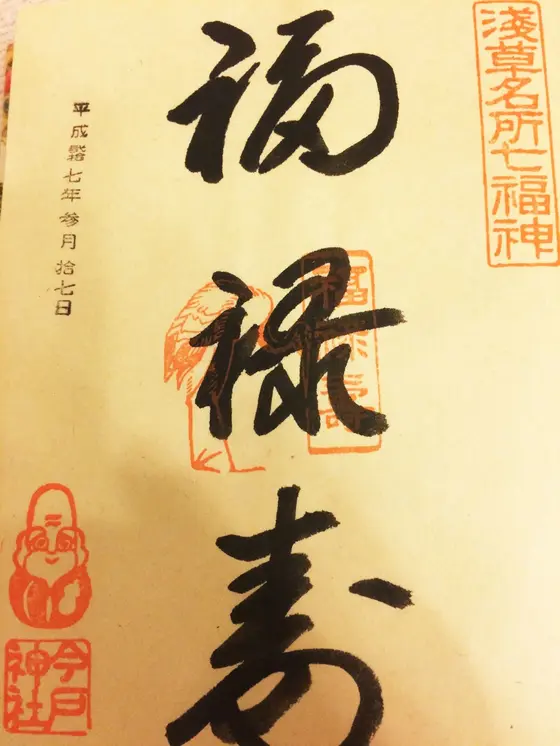 淺草名所七福神
福禄寿
福禄壽
平成貳拾七年参月拾七日
今戸神社